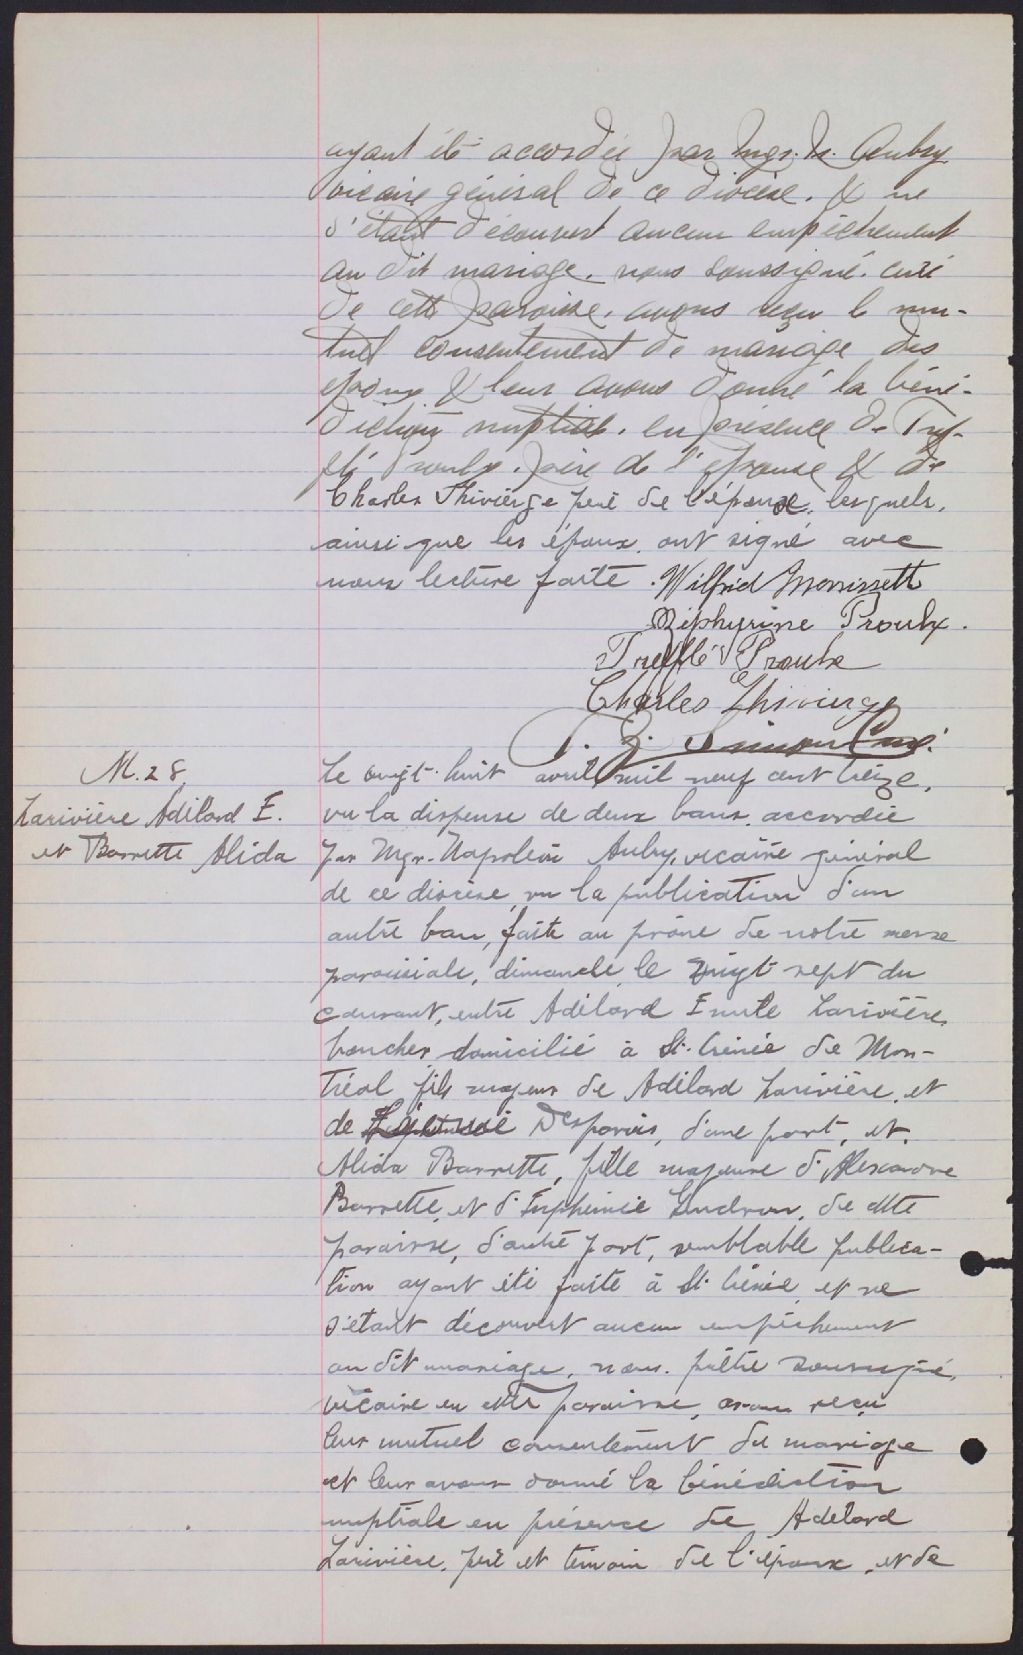 ayant été accordée par Mgr. N. Aubry
vicaire général de ce diocèse. & ne
s'étant découvert aucun empêchement
au dit mariage. nous soussigné. curé
de cette paroisse. avons reçu le mu-
tuel consentement de mariage des
époux & leur avons donné la béné-
diction nuptiale. en présence de Tref-
flé Proulx. père de l'épouse & de
Charles Thivierge père de l'époux. lesquels,
ainsi que les époux. ont signé avec
nous lecture faite. Wilfrid Morrissette
Zéphurine Proulx.
Trefflé Proulx
Charles Thivierge
Curé.
M. 28
Larivière Adélard E.
et Barrette Alida
Le vingt-huit avril mil neuf cent treize,
vu la dispense de deux bans accordée
par Mgr. Napoléon Aubry, vicaire général
de ce diocèse, vu la publication d'un
autre ban, faite au prône de notre messe
paroissiale, dimanche, le vingt sept du
courant, entre Adélard Emile Larivière,
boucher domicilié à St. Irénée de Mon-
tréal fils majeur de Adélard Larivière, et
de Desparois, d'une part, et,
Alida Barrette, fille majeure d'Alexandre
Barrette, et d'Euphémie Gendron, de cette
paroisse, d'autre part, semblable publica-
tion ayant été faite à St. Irénée et ne
s'étant découvert aucun empêchement
au dit mariage, nous. prêtre soussigné,
vicaire en cette paroisse, avons reçu
leur mutuel consentement du mariage
et leur avons donné la bénédiction
nuptiale en présence de Adélard
Larivière, père et témoin de l'époux, et de